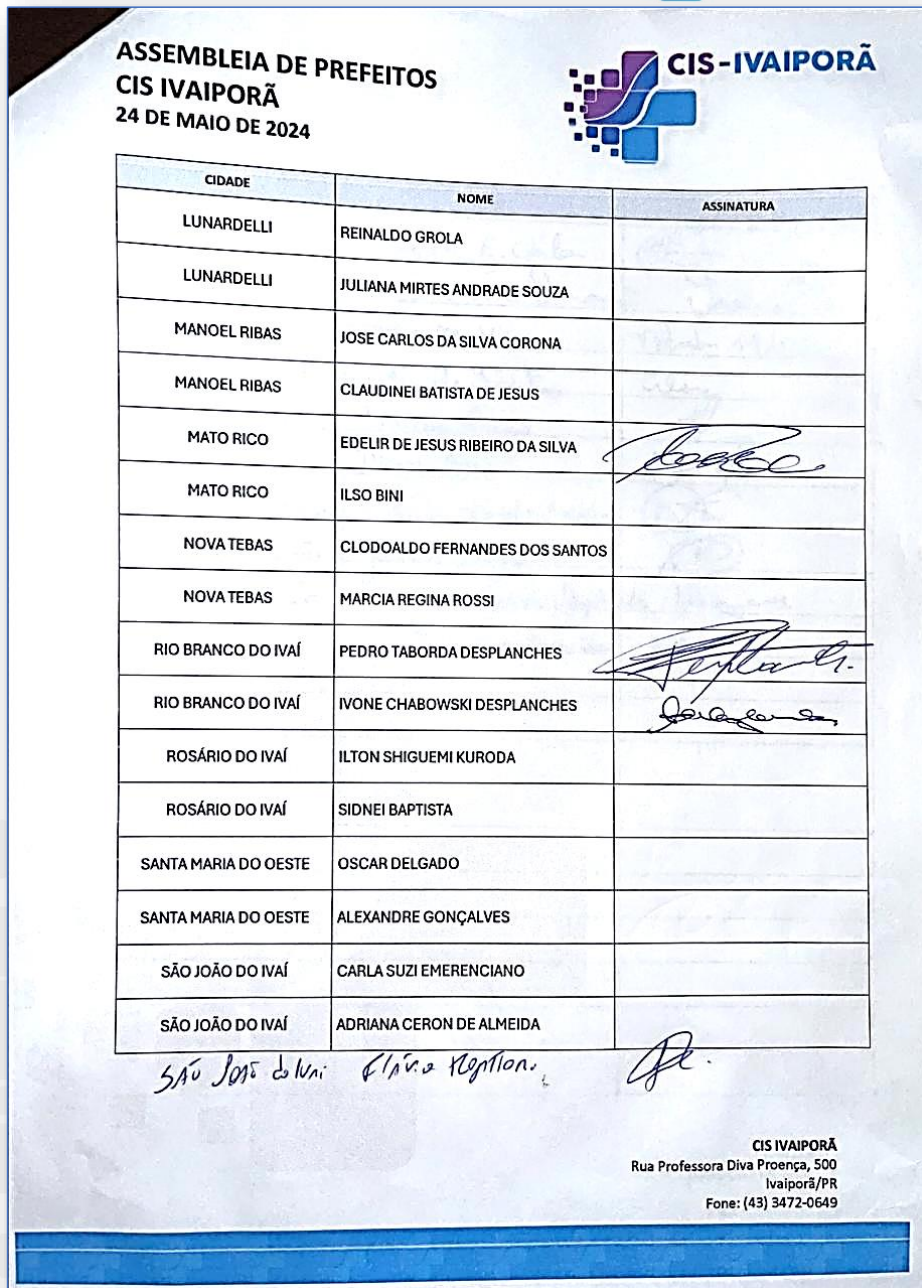 ASSEMBLEIA DE PREFEITOS
CIS IVAIPORÃ
24 DE MAIO DE 2024
CIS-IVAIPORÃ
CIDADE NOME ASSINATURA
LUNARDELLI REINALDO GROLA
LUNARDELLI JULIANA MIRTES ANDRADE SOUZA
MANOEL RIBAS JOSE CARLOS DA SILVA CORONA
MANOEL RIBAS CLAUDINEI BATISTA DE JESUS
MATO RICO EDELIR DE JESUS RIBEIRO DA SILVA
MATO RICO ILSO BINI
NOVA TEBAS CLODOALDO FERNANDES DOS SANTOS
NOVA TEBAS MARCIA REGINA ROSSI
RIO BRANCO DO IVAÍ PEDRO TABORDA DESPLANCHES
RIO BRANCO DO IVAÍ IVONE CHABOWSKI DESPLANCHES
ROSÁRIO DO IVAÍ ILTON SHIGUEMI KURODA
ROSÁRIO DO IVAÍ SIDNEI BAPTISTA
SANTA MARIA DO OESTE OSCAR DELGADO
SANTA MARIA DO OESTE ALEXANDRE GONÇALVES
SÃO JOÃO DO IVAÍ CARLA SUZI EMERENCIANO
SÃO JOÃO DO IVAÍ ADRIANA CERON DE ALMEIDA
SÃO JOÃO do Ivaí
CIS IVAIPORÃ
Rua Professora Diva Proença, 500
Ivaiporã/PR
Fone: (43) 3472-0649